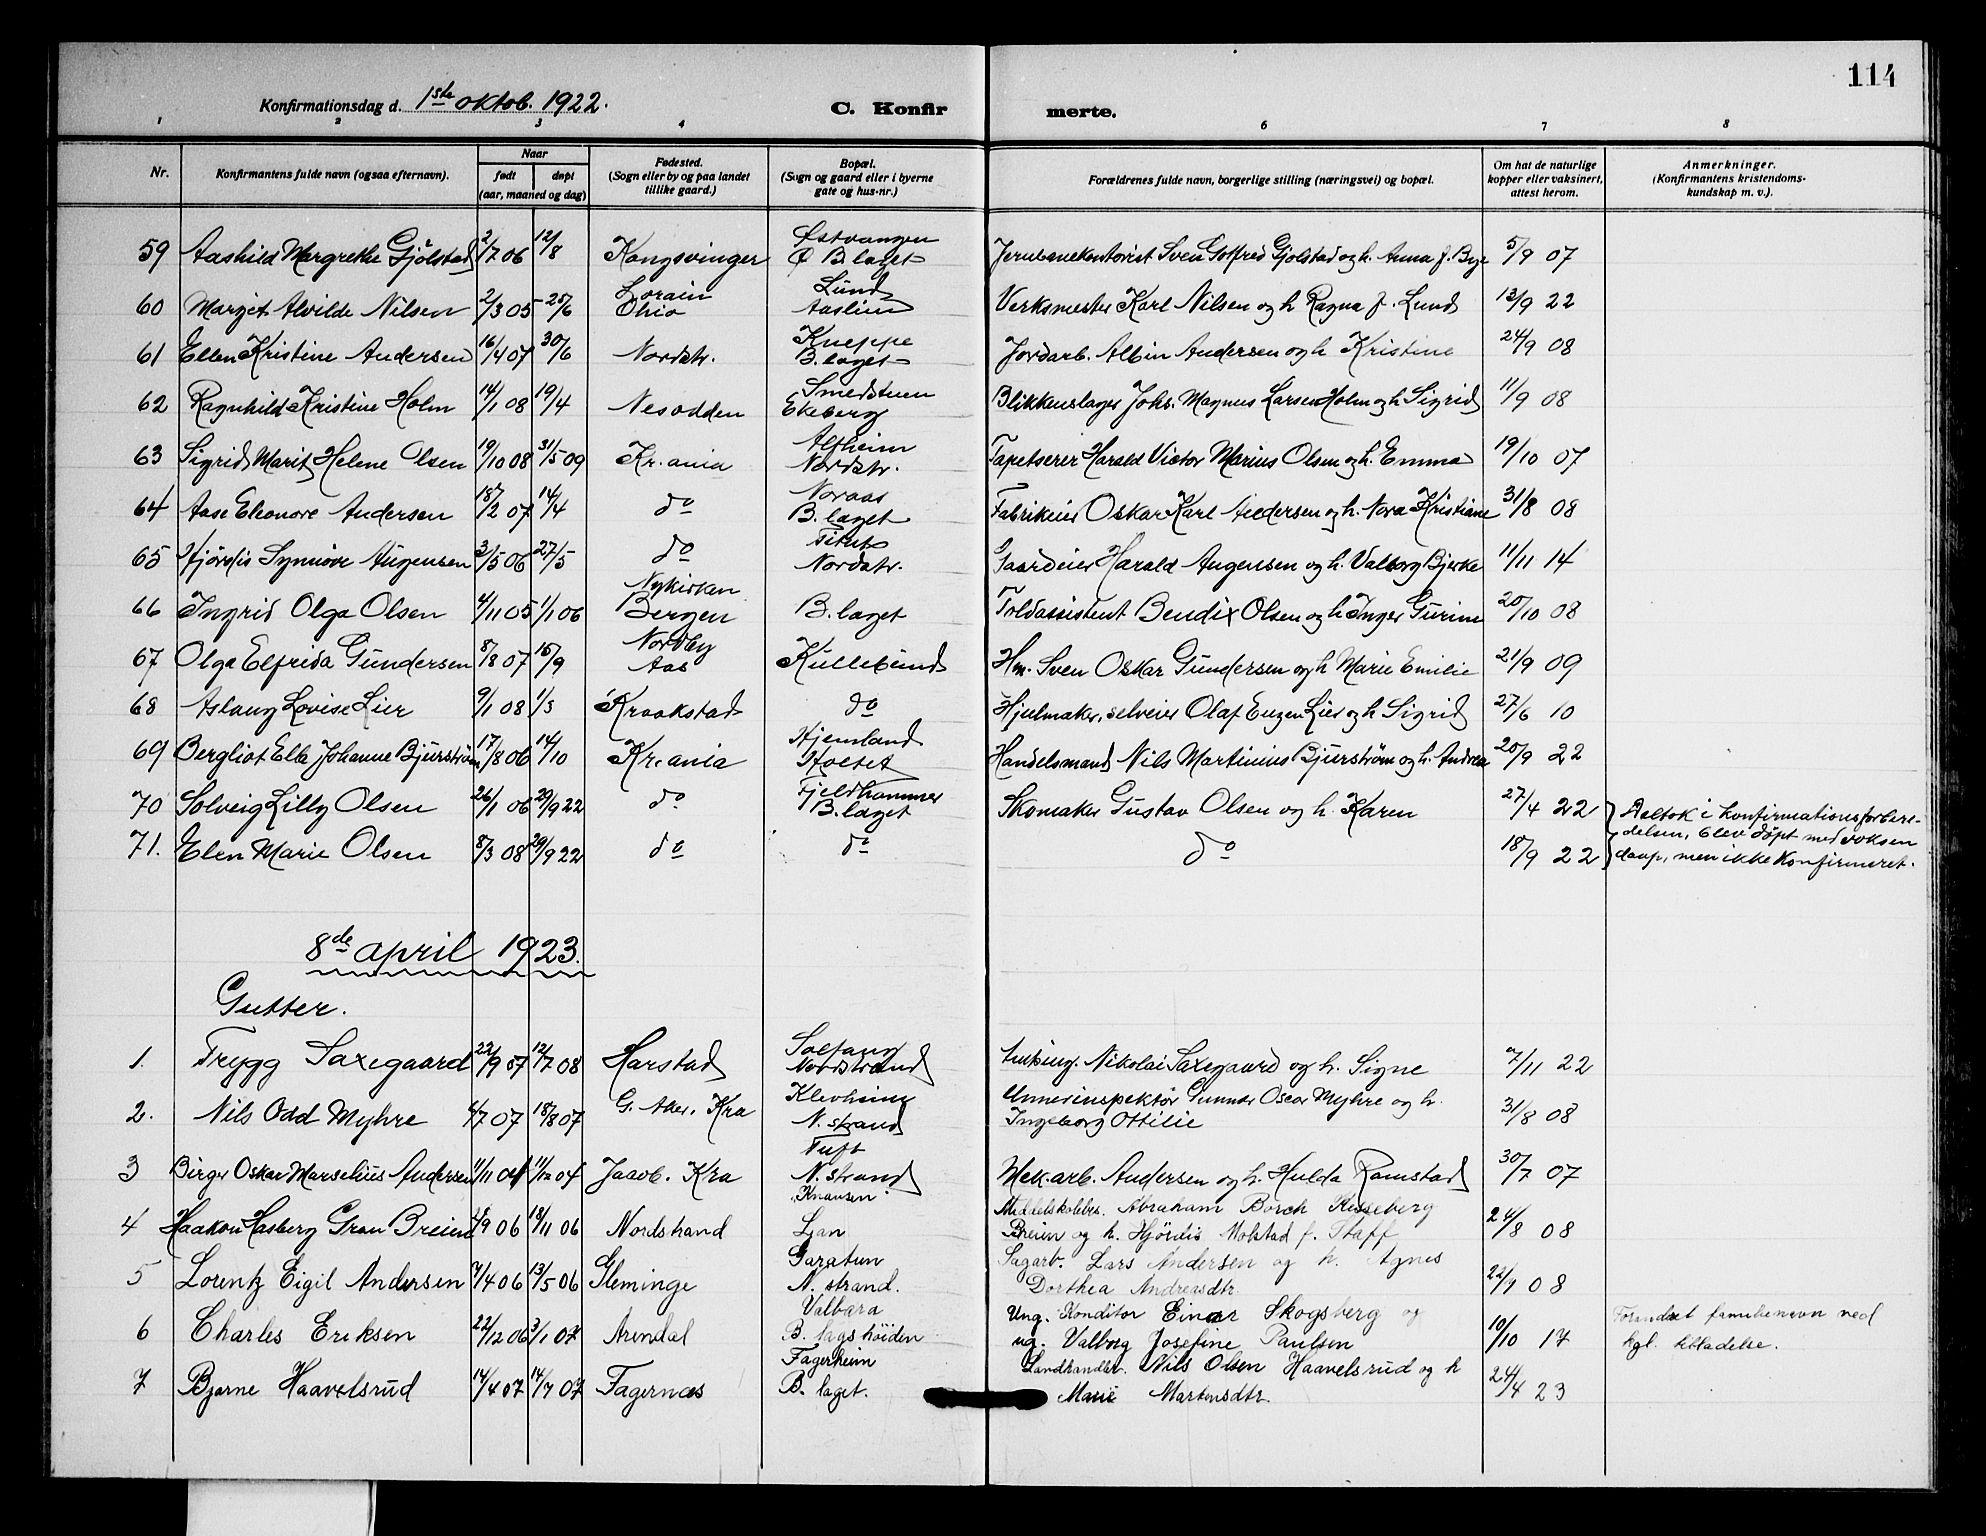 114
Konfirmationsdag d. 1ste oktob. 1922.
C. Konfirmerte.
1 2 3 4 6 7 8
Nr. Konfirmantens fulde navn (ogsaa efternavn). Naar født døpt (aar, maaned og dag) Fødested. (Sogn eller by og paa landet tillike gaard.) Bopæl. (Sogn og gaard eller i byerne gate og hus-nr.) Forældrenes fulde navn, borgerlige stilling (næringsvei) og bopæl. Om hat de naturlige kopper eller vaksinert, attest herom. Anmerkninger. (Konfirmantens kristendomskundskap m. v.).
59 Aashild Margrethe Gjölstad 2/7 06 12/8 Kongsvinger Østvangen Ø B.laget Jernbanekontorist Sven Gotfred Gjølstad og h. Anna f. Bye 5/9 07
60 Margit Alvilde Nilsen 2/3 05 25/6 Lorain Ohio Lund Aaslien Verksmester Karl Nilsen og h Ragna f. Lund 13/9 22
61 Ellen Kristine Andersen 16/4 07 30/6 Nordstr. Kneppe B.laget Jordarb. Albin Andersen og h Kristine 24/9 08
62 Ragnhild Kristine Holm 14/1 08 19/4 Nesodden Smedstuen Ekeberg Blikkenslager Johs. Magnus Larsen Holm og h Sigrid 11/9 08
63 Sigrid Marit Helene Olsen 19/10 08 31/5 09 Kr.ania Alfheim Nordstr. Tapetserer Harald Victor Marius Olsen og h. Emma 19/10 07
64 Aase Eleonore Andersen 18/2 07 14/4 do Noraas B.laget Fabrikeier Oskar Karl Andersen og h. Nora Kristiane 31/8 08
65 Hjördis Synnöve Augensen 3/5 06 27/5 do Nordstr. Gaardeier Harald Augensen og h. Valborg Bjerke 11/11 14
66 Ingrid Olga Olsen 4/11 05 1/1 06 Nykirken Bergen B.laget Toldassistent Bendix Olsen og h Inger Gurine 20/10 08
67 Olga Elfrida Gundersen 8/8 07 15/9 Nordby Aas Kullebund Hm. Sven Oskar Gundersen og h Marie Emilie 21/9 09
68 Aslaug Lovise Lier 9/1 08 1/3 Kraakstad do Hjulmaker, selveier Olaf Eugen Lier og h Sigrid 27/6 10
69 Bergliot Ella Johanne Bjurström 17/8 06 14/10 Kr.ania Hjemland Holtet Handelsmand Nils Martinius Bjurström og h. Andrea 20/9 22
70 Solveig Lilly Olsen 26/1 06 29/9 22 do Fjeldhammer B.laget Skomaker Gustav Olsen og h. Karen 27/4 22 Deltok i konfirmationsforberedelsen, blev döpt med voksen
71. Elen Marie Olsen 8/3 08 29/9 22 do do do 18/9 22 daap, men ikke konfirmeret.
8de april 1923.
Gutter.
1. Trygg Saxegaard 22/9 07 12/7 08 Harstad Solfang Nordstrand Nikolai Saxegaard og h. Signe 7/11 22
2. Nils Odd Myhre 4/7 07 18/8 07 G. Aker. Kra Klevheim N. strand Gunnar Oscar Myhre og h. Ingeborg Ottilie 31/8 08
3 Birger Oskar Marselius Andersen 11/11 04 11/12 04 Jacob. Kra Tuft N. strand Mek.arb. Andersen og h. Hulda Ramstad 30/7 07
4 Haakon Hasberg Gran Breien /9 06 18/11 06 Nordstrand Knausen. Ljan Middelskolebs. Abraham Borch Hesseberg Breien og h. Hjördis Molstad f. Staff 24/8 08
5 Lorentz Eigil Andersen 7/4 06 13/5 06 Gleminge Garatun N. strand. Sagarb. Lars Andersen og h. Agnes Dorthea Andreasdtr. 22/9 08
6 Charles Eriksen 22/12 06 3/1 07 Arendal Valbara B. lagshöiden Ung. Konditor Einar Skogsberg og ug. Valborg Josefine Paulsen 10/10 17 Forandret familienavn ved kgl. tilladelse.
7 Bjarne Haavelsrud 14/4 07 14/7 07 Fagernæs Fagerheim B. laget. Landhandler. Nils Olsen Haavelsrud og h Marie Martensdtr. 24/4 23